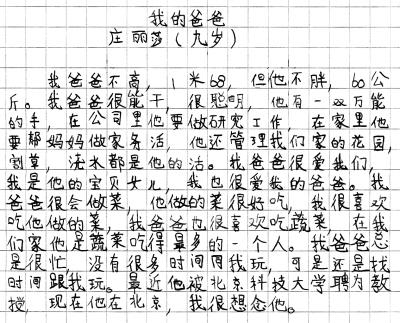 我的爸爸
庄丽莎（九岁）
我爸爸不高，1米68，但他不胖，60公
斤。我爸爸很能干，很聪明，他有一双万能
的手，在公司里他要做研究工作，在家里他
要帮妈妈做家务活，他还管理我们家的花园，
割草，浇水都是他的活。我爸爸很爱我们，
我是他的宝贝女儿，我也很爱我的爸爸。我
爸爸很会做菜，他做的菜很好吃，我很喜欢
吃他做的菜，我爸爸也很喜欢吃蔬菜，在我
们家他是蔬菜吃得最多的一个人。我爸爸总
是很忙，没有很多时间同我玩，可是还是找
时间跟我玩。最近他被北京科技大学聘为教
授，现在他在北京，我很想念他。